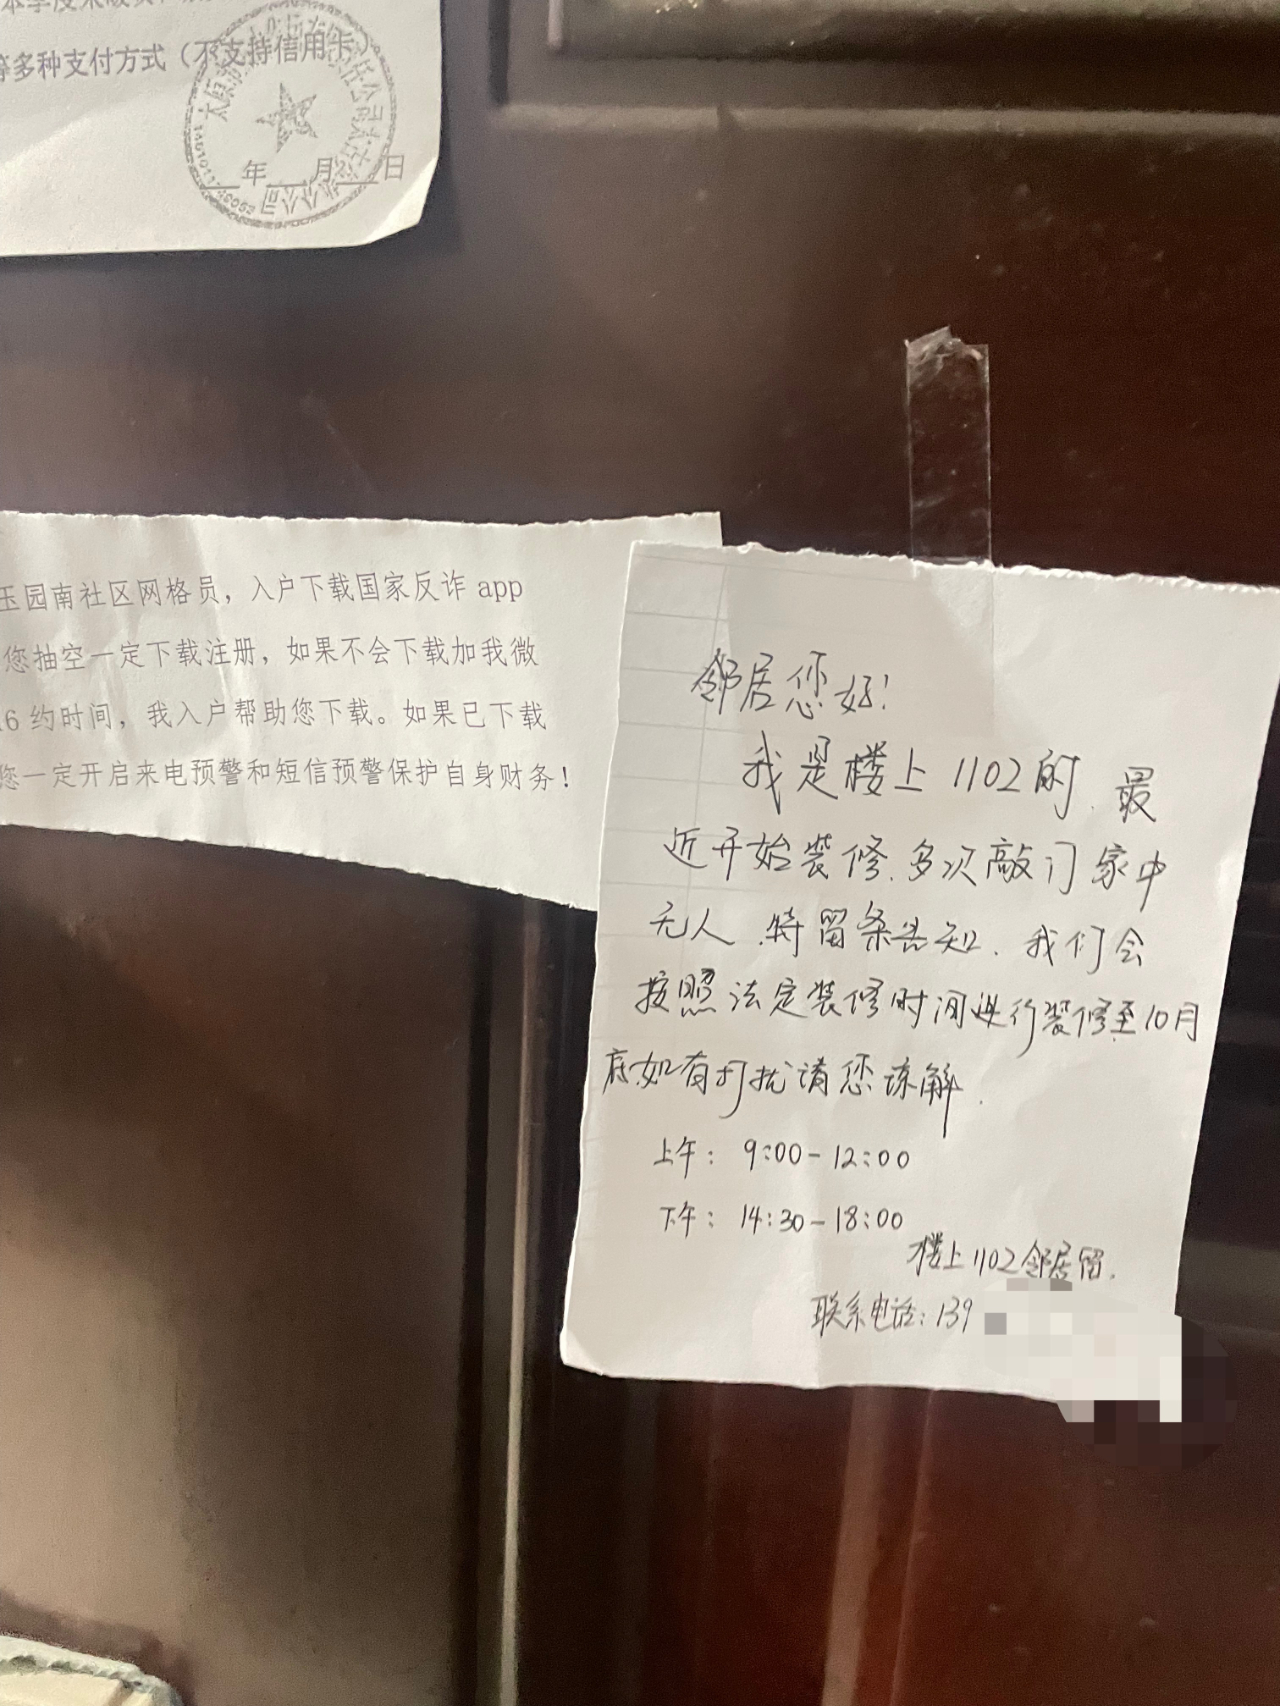 等多种支付方式（不支持信用卡）
年 月 日
玉园南社区网格员，入户下载国家反诈 app
您抽空一定下载注册，如果不会下载加我微
16 约时间，我入户帮助您下载。如果已下载
您一定开启来电预警和短信预警保护自身财务！
邻居您好！
我是楼上1102的，最
近开始装修，多次敲门家中
无人，特留条告知，我们会
按照法定装修时间进行装修至10月
底，如有打扰请您谅解．
上午：9:00-12:00
下午：14:30-18:00
楼上1102邻居留．
联系电话：139